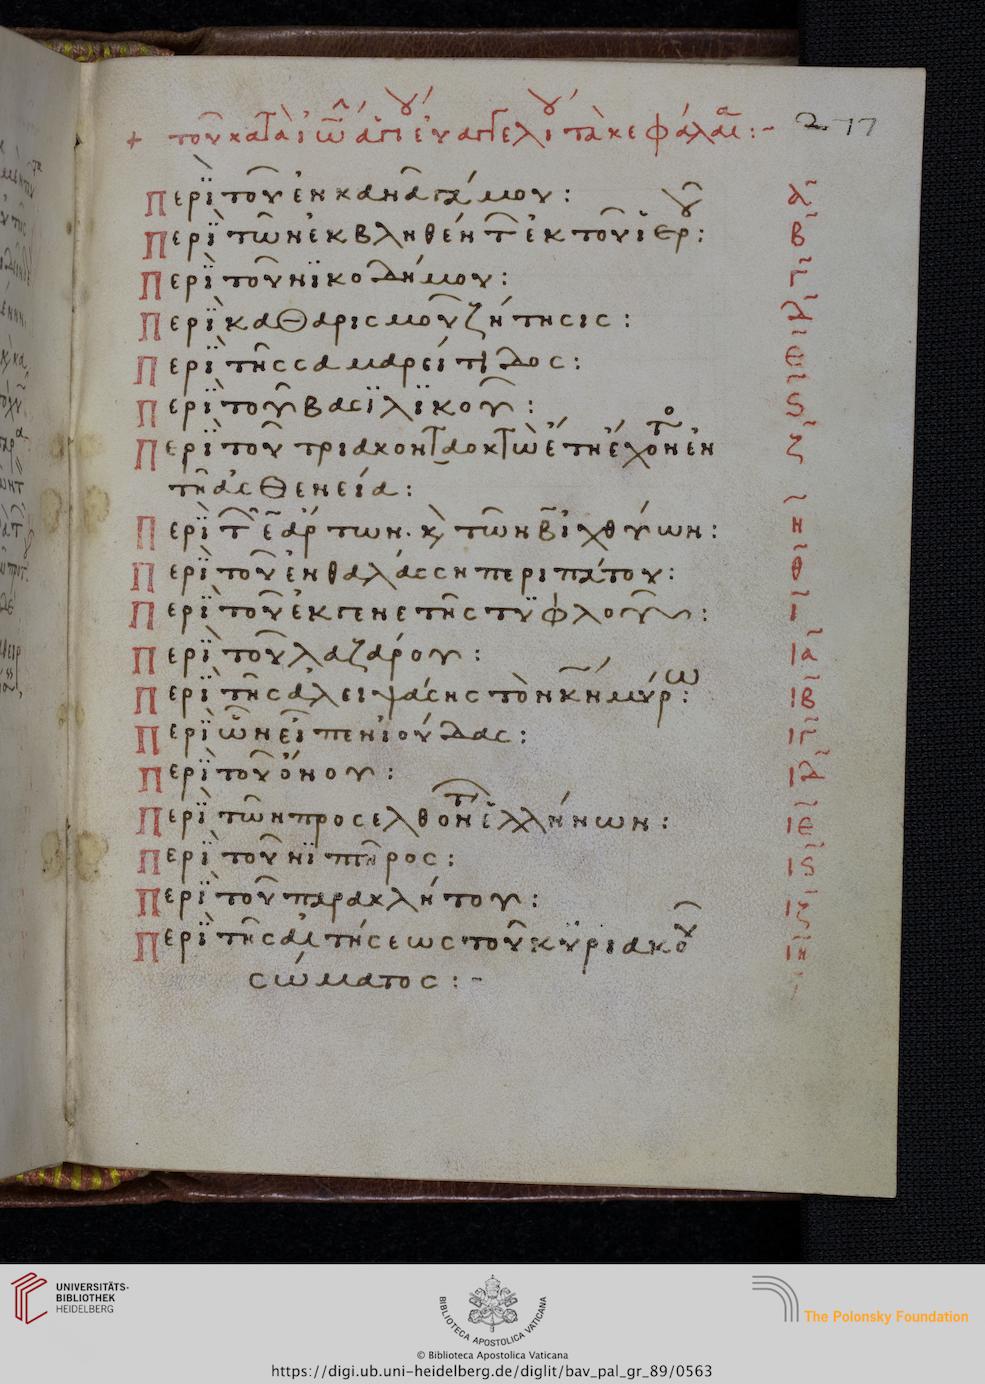 + τοῦ κατὰ ἰω ἁγίου εὐαγγελίου τὰ κεφάλαια :- 277
Περὶ τοῦ ἐν κανᾶ γάμου : α
Περὶ τῶν ἐκβληθέντ ἐκ τοῦ ἱεροῦ : β
Περὶ τοῦ νϊκοδήμου : γ
Περὶ καθαρισμοῦ ζήτησις : δ
Περὶ τῆς σαμαρείτιδος : ε
Περὶ τοῦ βασϊλϊκοῦ : ς
Περὶ τοῦ τριακονταοκτὼ ἔτη ἔχοντο ἐν ζ
τῆ ἀσθενεία :
Περὶ τ ε ἄρτων. κ τῶν β ἰχθύων : η
Περὶ τοῦ ἐν θαλάσση περιπάτου : θ
Περὶ τοῦ ἐκ γενετῆς τϋφλοῦ : ι
Περὶ τοῦ λαζάρου : ια
Περὶ τῆς ἀλειψάσης τὸν κν μύρω : ιβ
Περὶ ὧν εἶπεν ἰούδας : ιγ
Περὶ τοῦ ὄνου : ιδ
Περὶ τῶν προσελθοντ ἑλλήνων : ιε
Περὶ τοῦ νϊπτῆρος : ις
Περὶ τοῦ παρακλήτου : ιζ
Περὶ τῆς αἰτήσεως τοῦ κϋριακοῦ ιη
σώματος :-
UNIVERSITÄTS-
BIBLIOTHEK
HEIDELBERG
BIBLIOTECA APOSTOLICA VATICANA
The Polonsky Foundation
© Biblioteca Apostolica Vaticana
https://digi.ub.uni-heidelberg.de/diglit/bav_pal_gr_89/0563